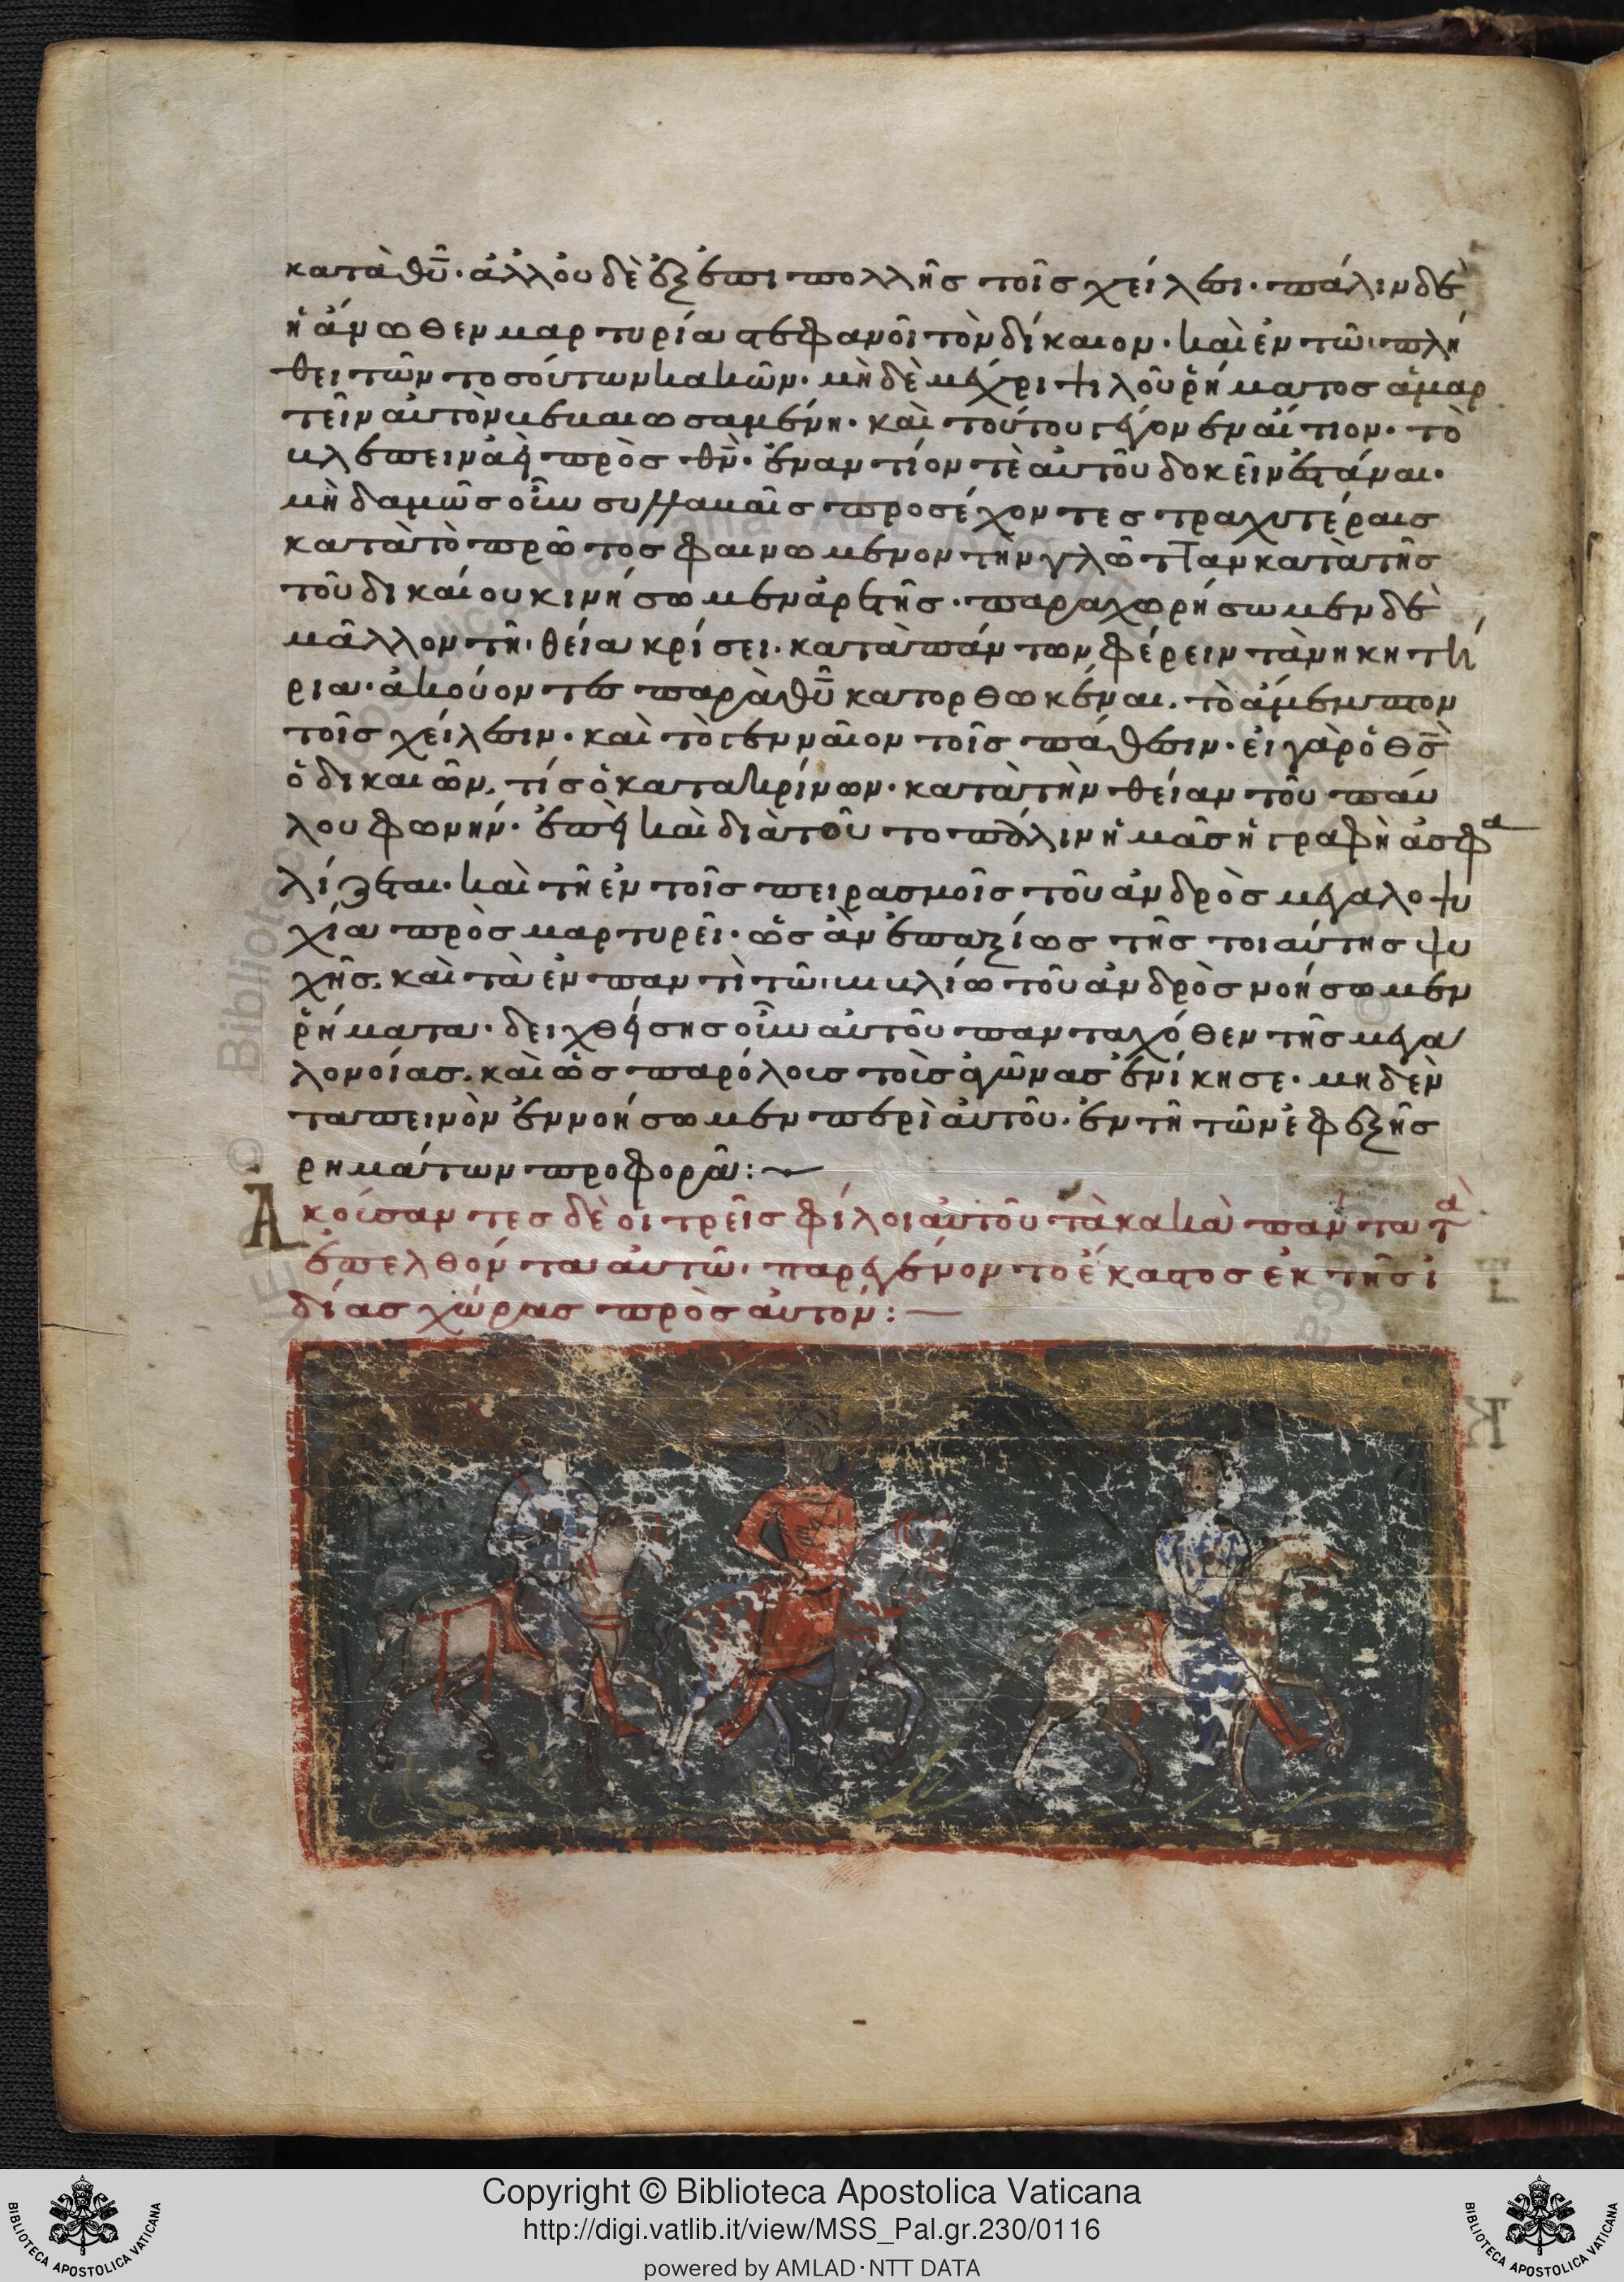 κατὰ θῦ· ἀλλ' οὐδὲ ἐξέπι πολλῆς τοῖς χείλεσι· πάλιν δὲ
ἡ ἄνωθεν μαρτυρία στεφανοῖ τὸν δίκαιον· καὶ ἐν τῷ πλή
θει τῶν τοσούτων κακῶν· μὴ δὲ μέχρι ψιλοῦ ῥήματος ἁμαρ
τεῖν αὐτὸν
καὶ τούτου
αἴτιον· τὸ
πρὸς θν· ἐναντίον τὲ αὐτοῦ δοκεῖν ἱστάναι·
μὴ δαμῶς οὖν συλλαβαῖς προσέχοντες τραχυτέραις
κατὰ τὸ
τὴν γλῶτταν κατὰ τῆς
τοῦ δικαίου κινήσωμεν ἀρετῆς· παραχωρήσωμεν δὲ
μᾶλλον τῇ θεία κρίσει· κατὰ πάντων φέρειν τὰ νηκητή
ρια· ἀκούοντες παρὰ θῦ κατορθωκέναι· τὸ ἄμεμπτον
τοῖς χείλεσιν· καὶ τὸ γενναῖον τοῖς πάθεσιν· εἰ γὰρ ὁ θς
ὁ δικαιῶν, τίς ὁ κατακρίνων· κατὰ τὴν θείαν τοῦ παύ
λου φωνήν· ἐπεὶ καὶ διὰ τοῦτο πάλιν ἡμᾶς ἡ γραφὴ ἀσφα
λίζεται· καὶ τῇ ἐν τοῖς πειρασμοῖς τοῦ ἀνδρὸς μεγαλοψυ
χία προσμαρτυρεῖ· ὡς ἂν ἐπαξίως τῆς τοιαύτης ψυ
χῆς· καὶ τὰ ἐν παντὶ τῷ βιβλίω τοῦ ἀνδρὸς νοήσωμεν
ῥήματα· δειχθείσης οὖν αὐτοῦ πανταχόθεν τῆς μεγα
λονοίας· καὶ ὡς παρόλους τοὺς ἀγῶνας ἐνίκησε· μηδὲν
ταπεινὸν ἐννοήσωμεν περὶ αὐτοῦ· ἐν τῇ τῶν ἐφεξῆς
ρημάτων προφορᾶ:
Ακούσαντες δὲ οι τρεῖς φίλοι αὐτοῦ τὰ κακὰ πάντα τὰ
ἐπελθόντα αὐτῷ· παρεγένοντο ἕκαστος ἐκ τῆς ἰ
δίας χώρας πρὸς αὐτόν:
Copyright © Biblioteca Apostolica Vaticana
http://digi.vatlib.it/view/MSS_Pal.gr.230/0116
powered by AMLAD·NTT DATA
BIBLIOTECA APOSTOLICA VATICANA
BIBLIOTECA APOSTOLICA VATICANA